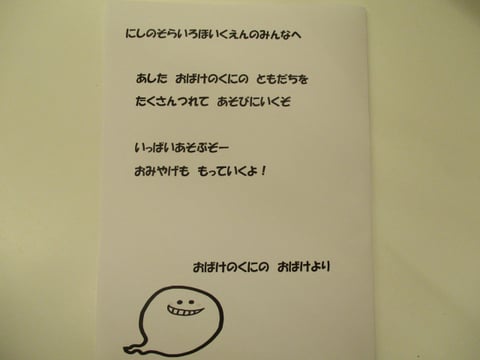 にしのそらいろほいくえんのみんなへ
あした おばけのくにの ともだちを
たくさんつれて あそびにいくぞ
いっぱいあそぶぞー
おみやげも もっていくよ！
おばけのくにの おばけより